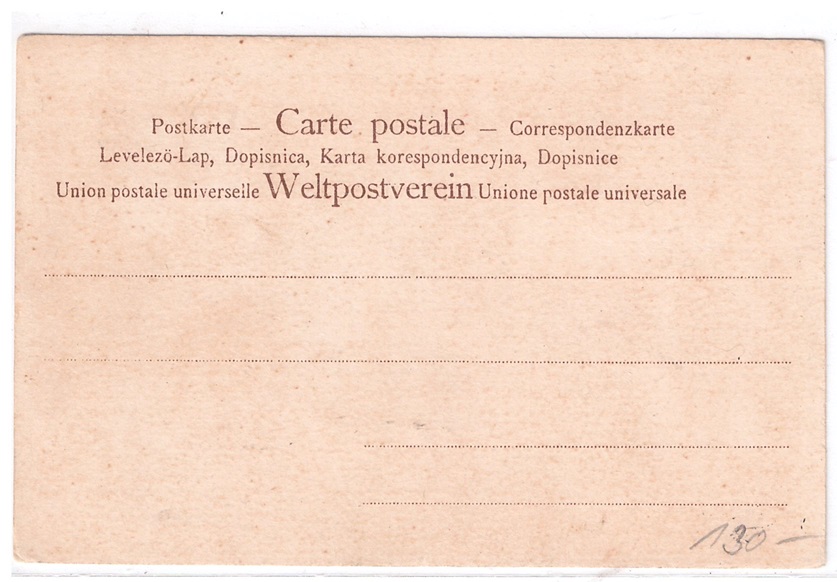 Postkarte — Carte postale — Correspondenzkarte
Levelezö-Lap, Dopisnica, Karta korespondencyjna, Dopisnice
Union postale universelle Weltpostverein Unione postale universale
130 —